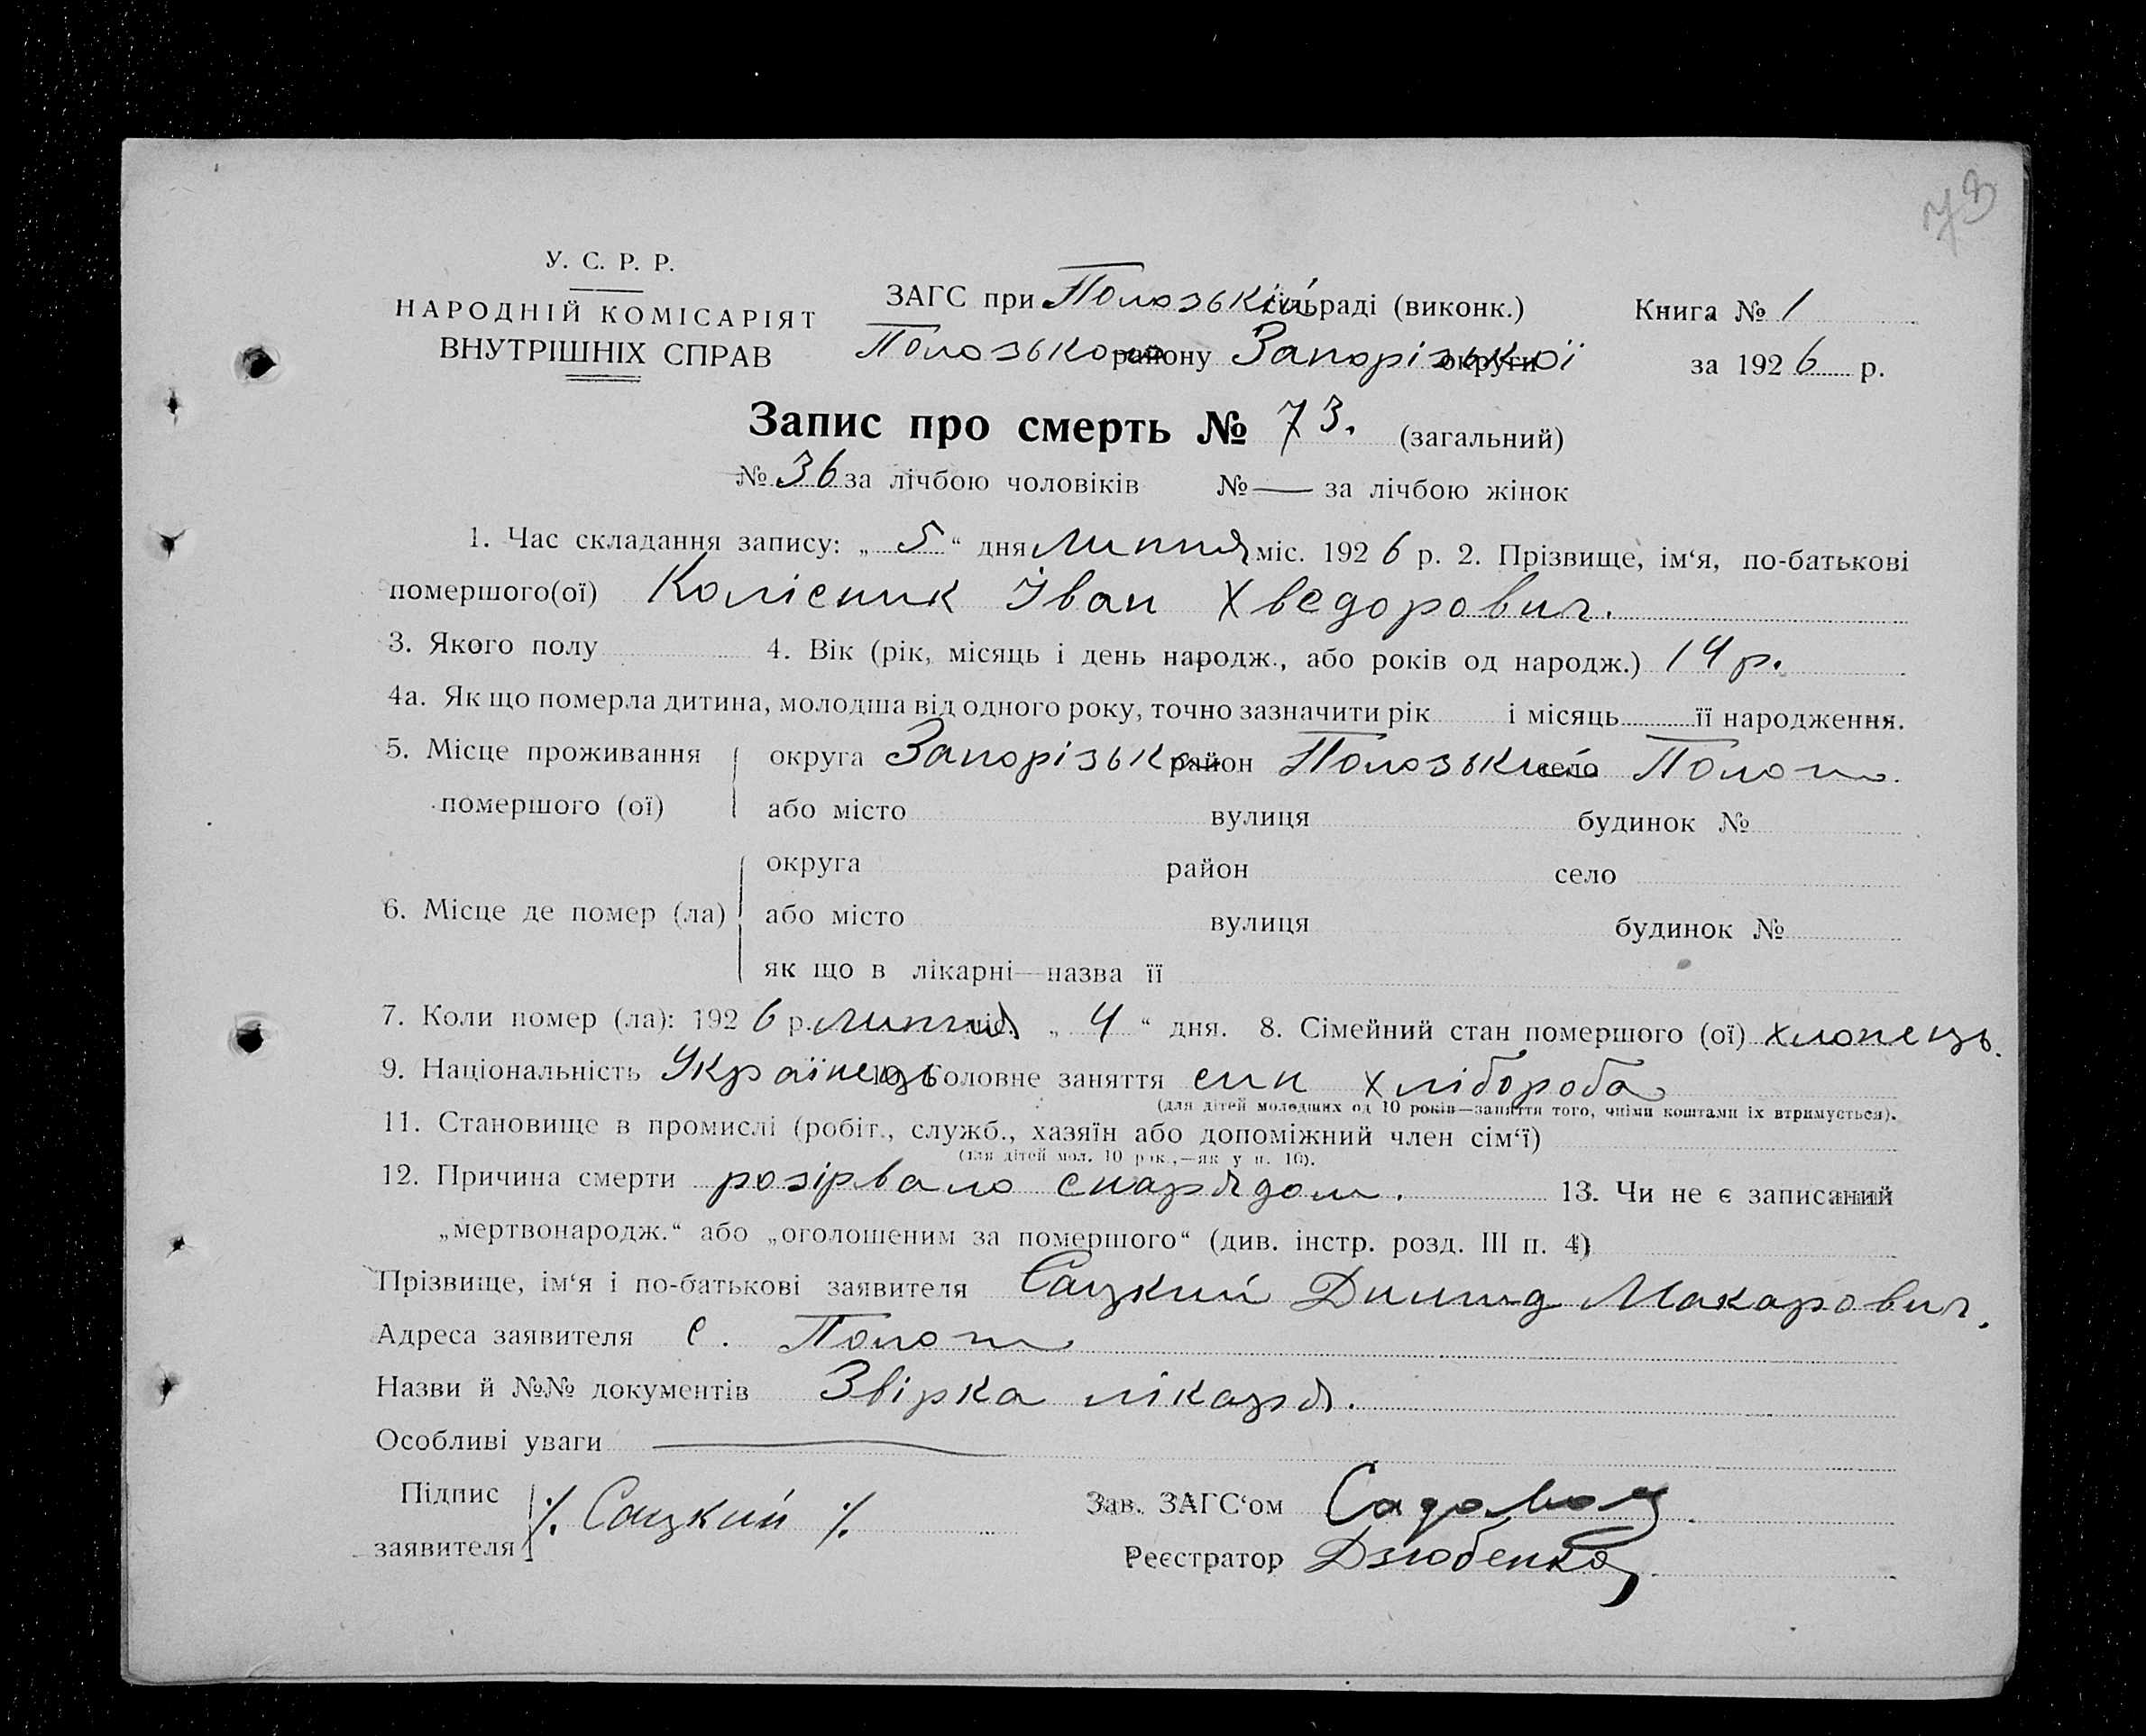 73
У. С. Р. Р.
НАРОДНІЙ КОМІСАРІЯТ
ВНУТРІШНІХ СПРАВ
ЗАГС при Полозській сільраді (виконк.)
Полозького району Запорізької округи
Книга № 1
за 1926 р.
Запис про смерть № 73. (загальний)
№ 36 за лічбою чоловіків № — за лічбою жінок
1. Час складання запису: „ 5 “ дня липня міс. 1926 р. 2. Прізвище, ім‘я, по-батькові
помершого(ої) Колісник Іван Хведорович.
3. Якого полу 4. Вік (рік, місяць і день народж., або років од народж.) 14 р.
4а. Як що померла дитина, молодша від одного року, точно зазначити рік і місяць її народження.
5. Місце проживання помершого (ої) округа Запорізька район Полозький село Пологи.
або місто вулиця будинок №
6. Місце де помер (ла) округа район село
або місто вулиця будинок №
як що в лікарні—назва її
7. Коли помер (ла): 1926 р. липня міс. „ 4 “ дня. 8. Сімейний стан помершого (ої) хлопець.
9. Національність Українець 10. Головне заняття син хлібороба
(для дітей молодших од 10 років—заняття того, чиїми коштами їх втримується).
11. Становище в промислі (робіт., служб., хазяїн або допоміжний член сім‘ї)
(для дітей мол. 10 рок.,—як у п. 10).
12. Причина смерти розірвало снарядом. 13. Чи не є записаний
„мертвонародж.“ або „оголошеним за помершого“ (див. інстр. розд. III п. 4)
Прізвище, ім‘я і по-батькові заявителя Сацкий Макарович.
Адреса заявителя с. Пологи
Назви й №№ документів Звірка лікаря.
Особливі уваги —
Підпис заявителя ·/. Сацкий ·/.
Зав. ЗАГС‘ом
Реєстратор Дзюбенко